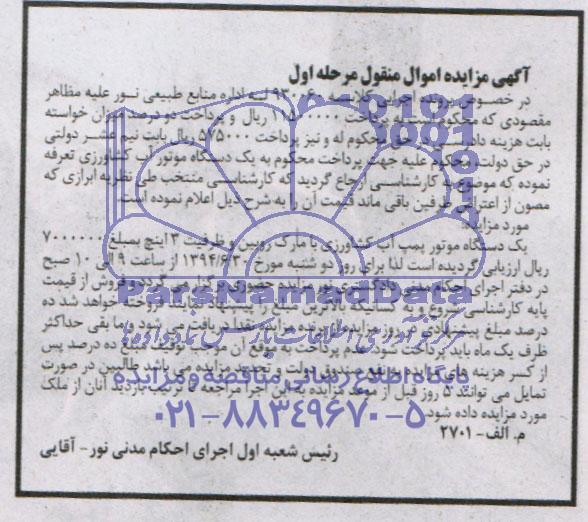 آگهی مزایده اموال منقول مرحله اول
در خصوص پرونده اجرایی کلاسه ۹۳۰۰۶۰ له اداره منابع طبیعی نور علیه مظاهر
مقصودی که محکوم به پرداخت ریال و پرداخت دو درصد میزان خواسته
بابت هزینه دادرسی در حق محکوم له و نیز پرداخت ۵۷۵۰۰۰ ریال بابت نیم عشر دولتی
در حق دولت محکوم علیه جهت پرداخت محکوم به یک دستگاه موتور آب کشاورزی تعرفه
نموده که موضوع به کارشناسی ارجاع گردید که کارشناسی منتخب طی نظریه ابرازی که
مصون از اعتراض طرفین باقی مانده قیمت آن را به شرح ذیل اعلام نموده است.
مورد مزایده:
یک دستگاه موتور پمپ آب کشاورزی با مارک روبین و ظرفیت ۳ اینچ بمبلغ ۷۰۰۰۰۰۰
ریال ارزیابی گردیده است لذا برای روز دو شنبه مورخ ۱۳۹۴/۶/۳۰ از ساعت ۹ الی ۱۰ صبح
در دفتر اجرای احکام مدنی دادگستری نور مزایده حضوری برگزار می گردد و فروش از قیمت
پایه کارشناسی شروع و به کسانیکه بالاترین مبلغ را پیشنهاد نمایند فروخته خواهد شد ده
درصد مبلغ پیشنهادی در روز مزایده از برنده مزایده نقدا دریافت می شود و مابقی حداکثر
ظرف یک ماه باید پرداخت شود. عدم پرداخت به موقع آن موجب توقیف مبلغ ده درصد پس
از کسر هزینه های مزایده به نفع صندوق دولت و تجدید مزایده می باشد طالبین در صورت
تمایل می توانند ۵ روز قبل از موعد مزایده به این اجرا مراجعه تا ترتیب بازدید آنان از ملک
مورد مزایده داده شود.
م. الف- ۲۷۰۱
رئیس شعبه اول اجرای احکام مدنی نور- آقایی
ParsNamadData
پایگاه اطلاع رسانی مناقصه و مزایده
۰۲۱-۸۸۳۴۹۶۷۰-۵